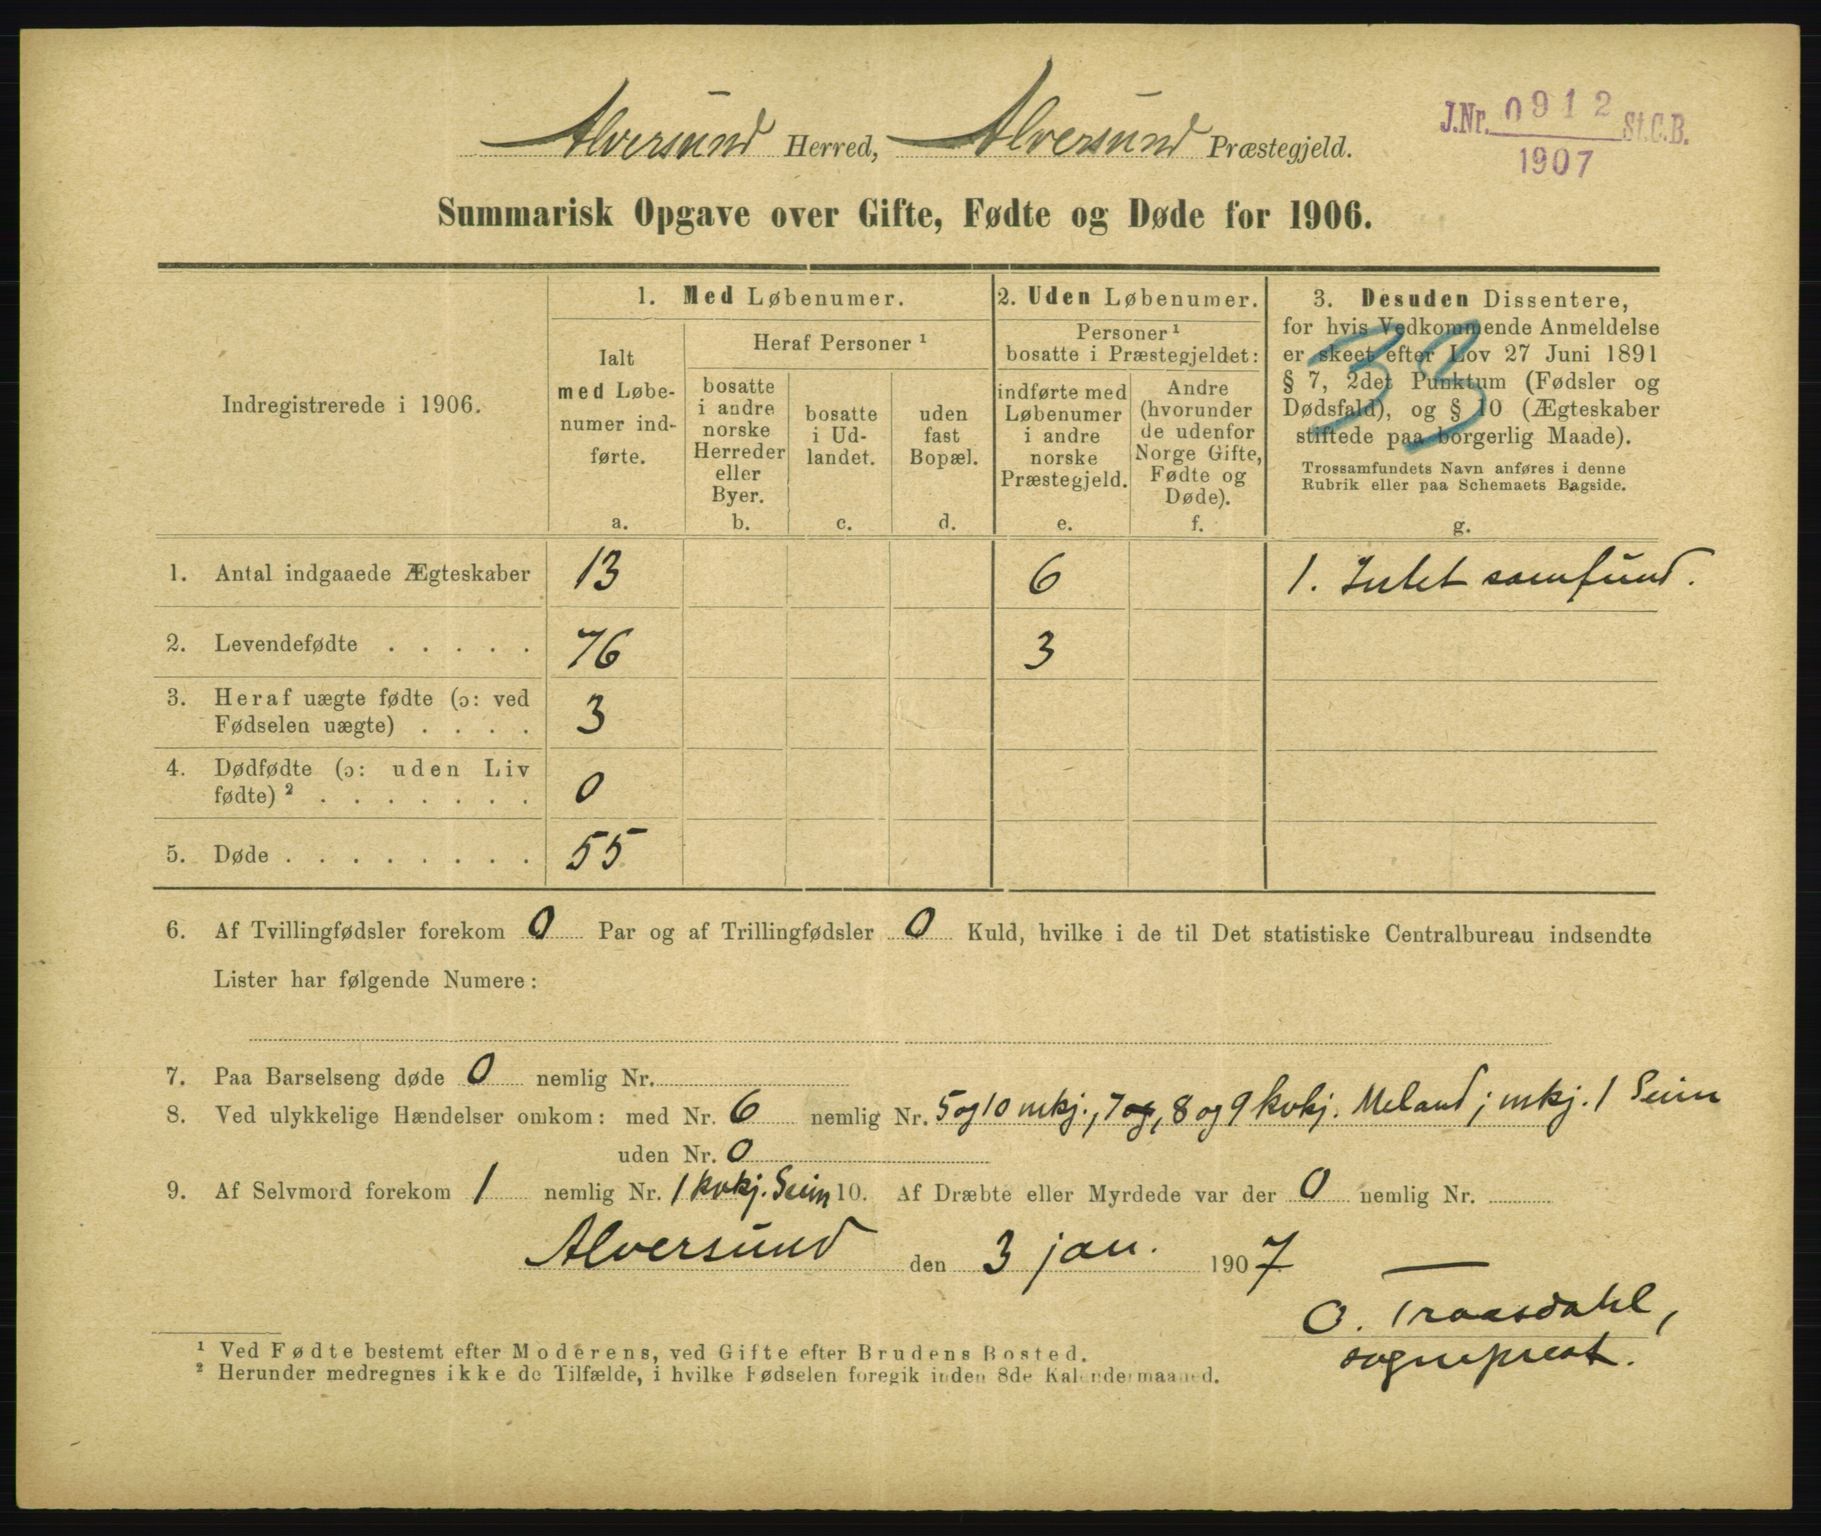 Alversund Herred, Alversund Præstegjeld.
J.Nr. 0912 St.C.B.
1907
Summarisk Opgave over Gifte, Fødte og Døde for 1906.
Indregistrerede i 1906.
1. Med Løbenumer.
Ialt
med Løbe-
numer ind-
førte.
a.
Heraf Personer ¹
bosatte
i andre
norske
Herreder
eller
Byer.
b.
bosatte
i Ud-
landet.
c.
uden
fast
Bopæl.
d.
2. Uden Løbenumer.
Personer ¹
bosatte i Præstegjeldet:
indførte med
Løbenumer
i andre
norske
Præstegjeld.
e.
Andre
(hvorunder
de udenfor
Norge Gifte,
Fødte og
Døde).
f.
3. Desuden Dissentere,
for hvis Vedkommende Anmeldelse
er skeet efter Lov 27 Juni 1891
§ 7, 2det Punktum (Fødsler og
Dødsfald), og § 10 (Ægteskaber
stiftede paa borgerlig Maade).
Trossamfundets Navn anføres i denne
Rubrik eller paa Schemaets Bagside.
g.
33
1. Antal indgaaede Ægteskaber 13 6 1. Intet samfund.
2. Levendefødte . . . . . 76 3
3. Heraf uægte fødte (ɔ: ved
Fødselen uægte) . . . . 3
4. Dødfødte (ɔ: uden Liv
fødte) ² . . . . . . . 0
5. Døde . . . . . . . . 55
6. Af Tvillingfødsler forekom 0 Par og af Trillingfødsler 0 Kuld, hvilke i de til Det statistiske Centralbureau indsendte
Lister har følgende Numere:
7. Paa Barselseng døde 0 nemlig Nr.
8. Ved ulykkelige Hændelser omkom: med Nr. 6 nemlig Nr. 5 og 10 mkj., 7 og, 8 og 9 kvkj. Meland; mkj. 1 Seim
uden Nr. 0
9. Af Selvmord forekom 1 nemlig Nr. 1 kvkj. Seim 10. Af Dræbte eller Myrdede var der 0 nemlig Nr.
Alversund den 3 jan. 1907
O. Traasdahl,
sogneprest.
¹ Ved Fødte bestemt efter Moderens, ved Gifte efter Brudens Bosted.
² Herunder medregnes ikke de Tilfælde, i hvilke Fødselen foregik inden 8de Kalendermaaned.